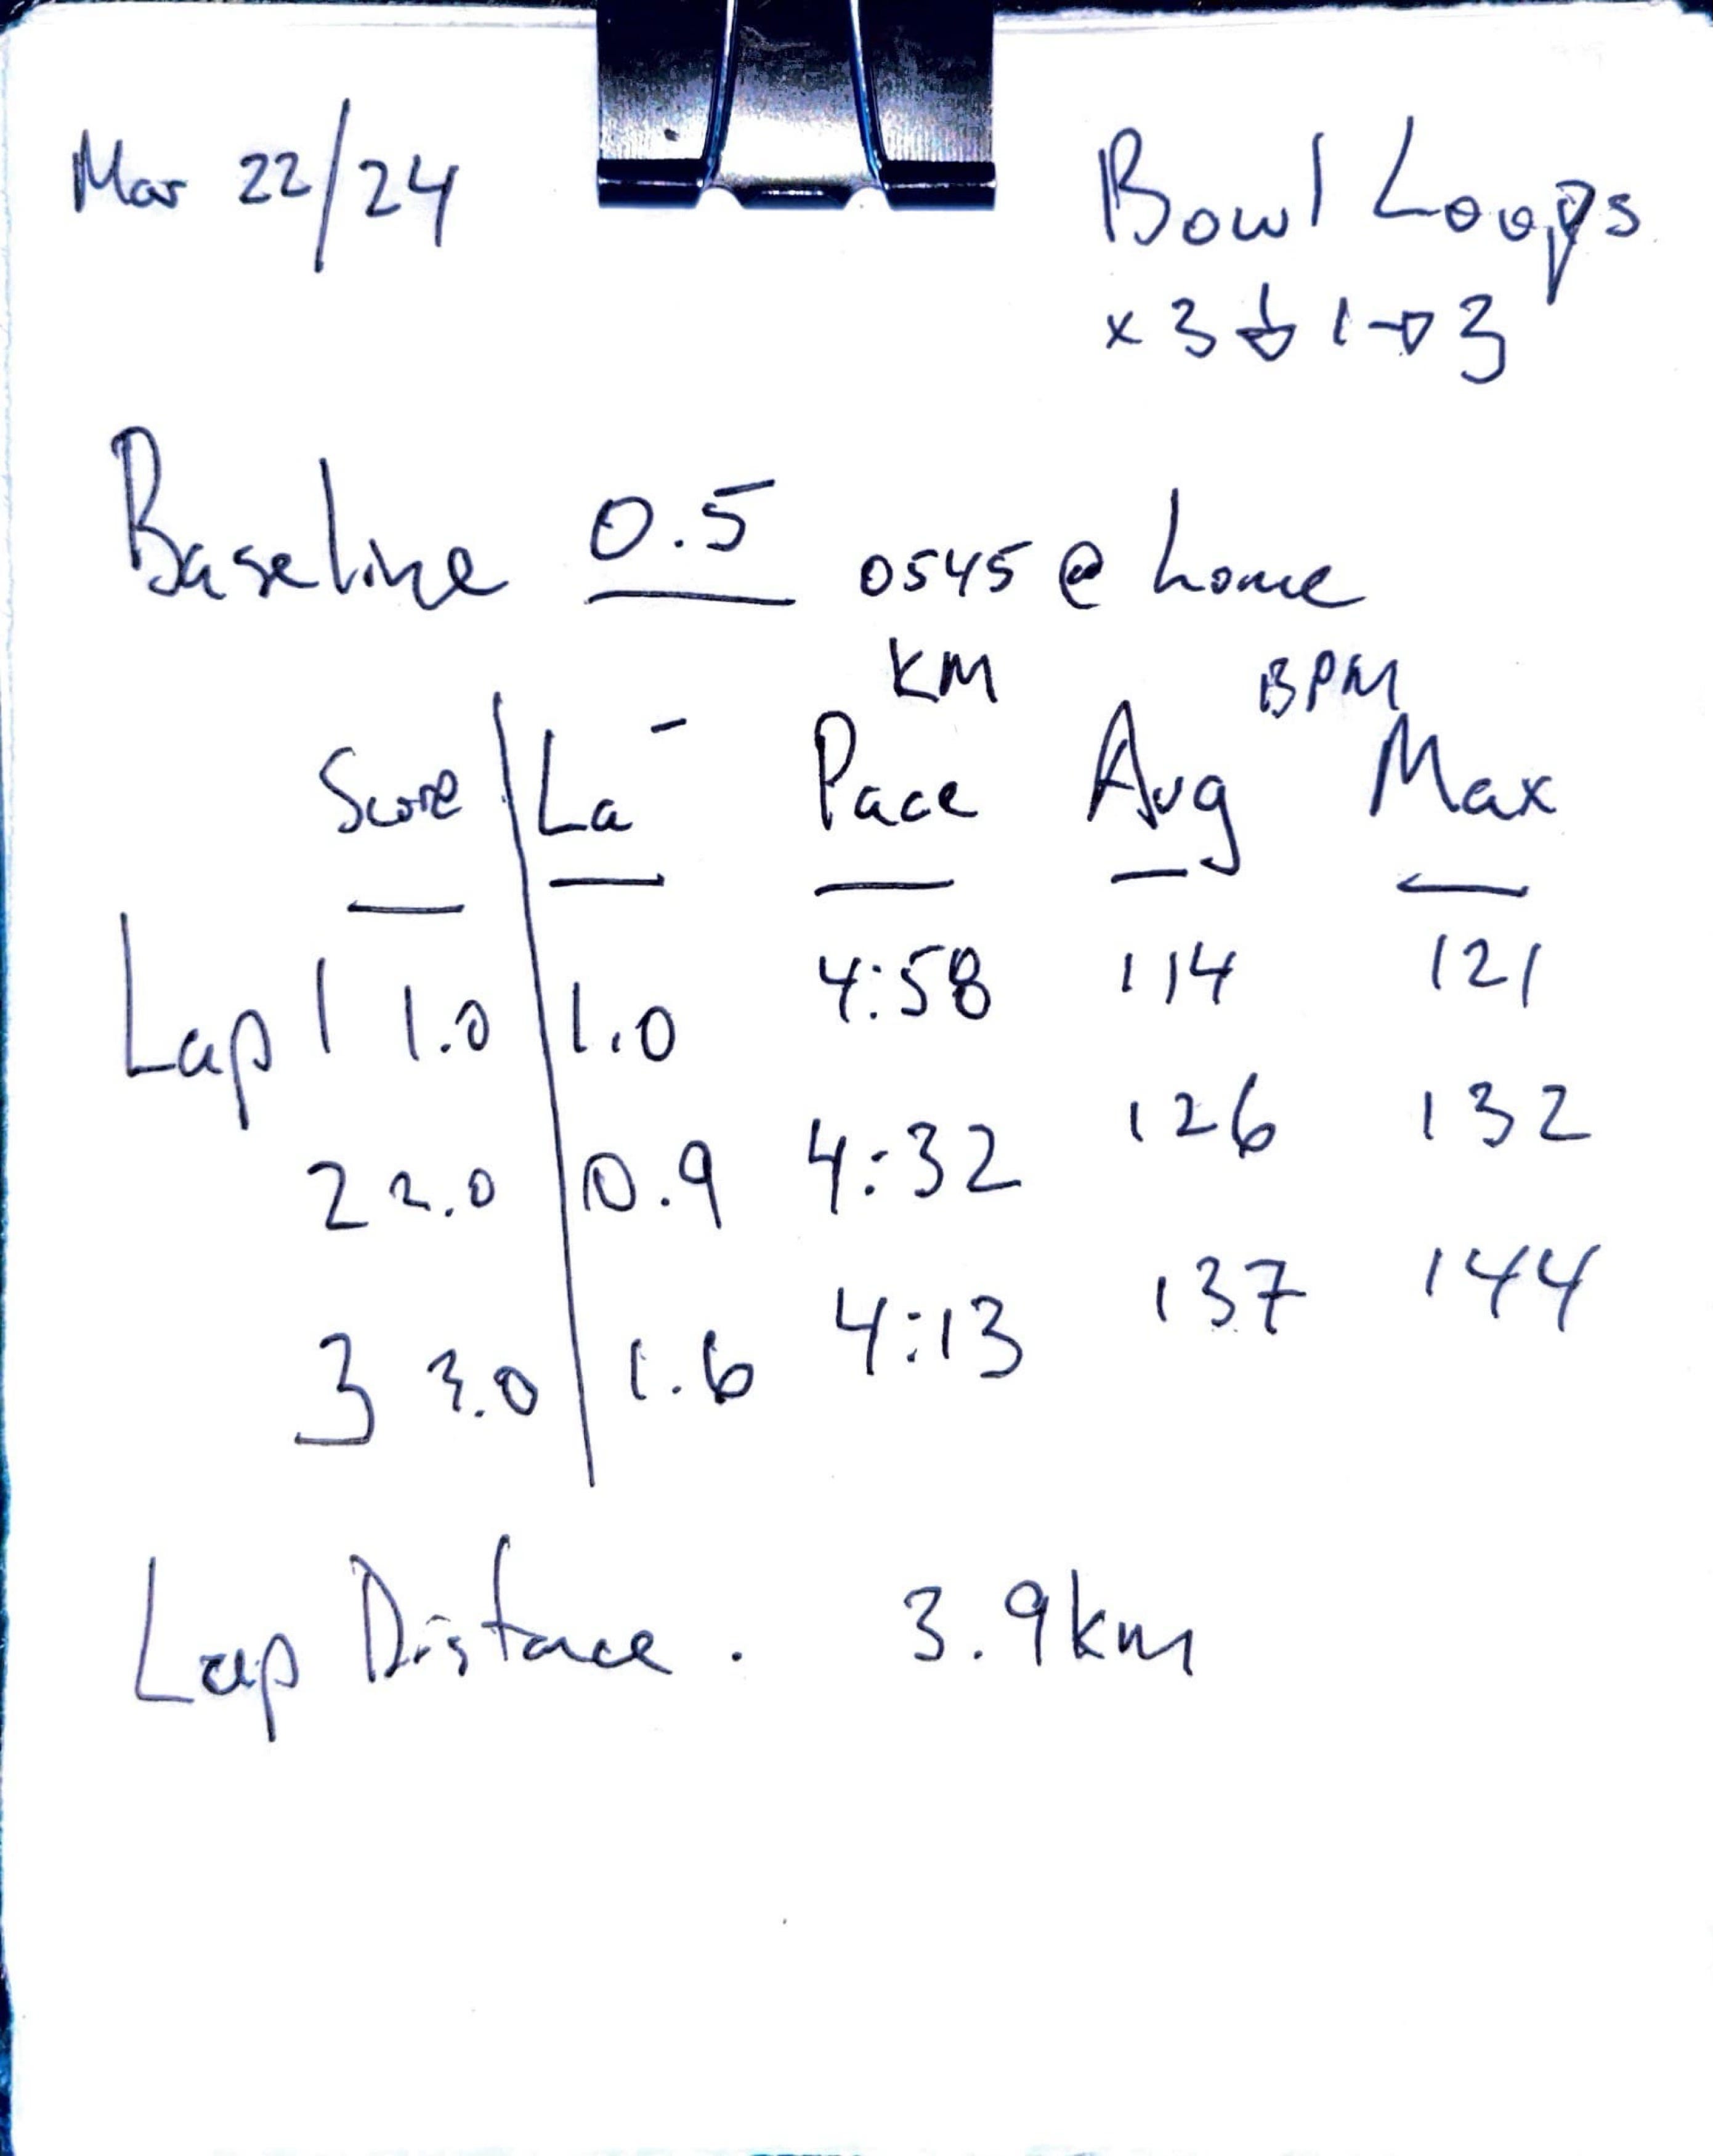 Mar 22/24
Bowl Loops
x 3 ↓ 1→3
Baseline 0.5 0545 @ home
KM BPM
Score La⁻ Pace Avg Max
Lap 1 1.0 1.0 4:58 114 121
2 2.0 0.9 4:32 126 132
3 3.0 1.6 4:13 137 144
Lap Distance. 3.9km